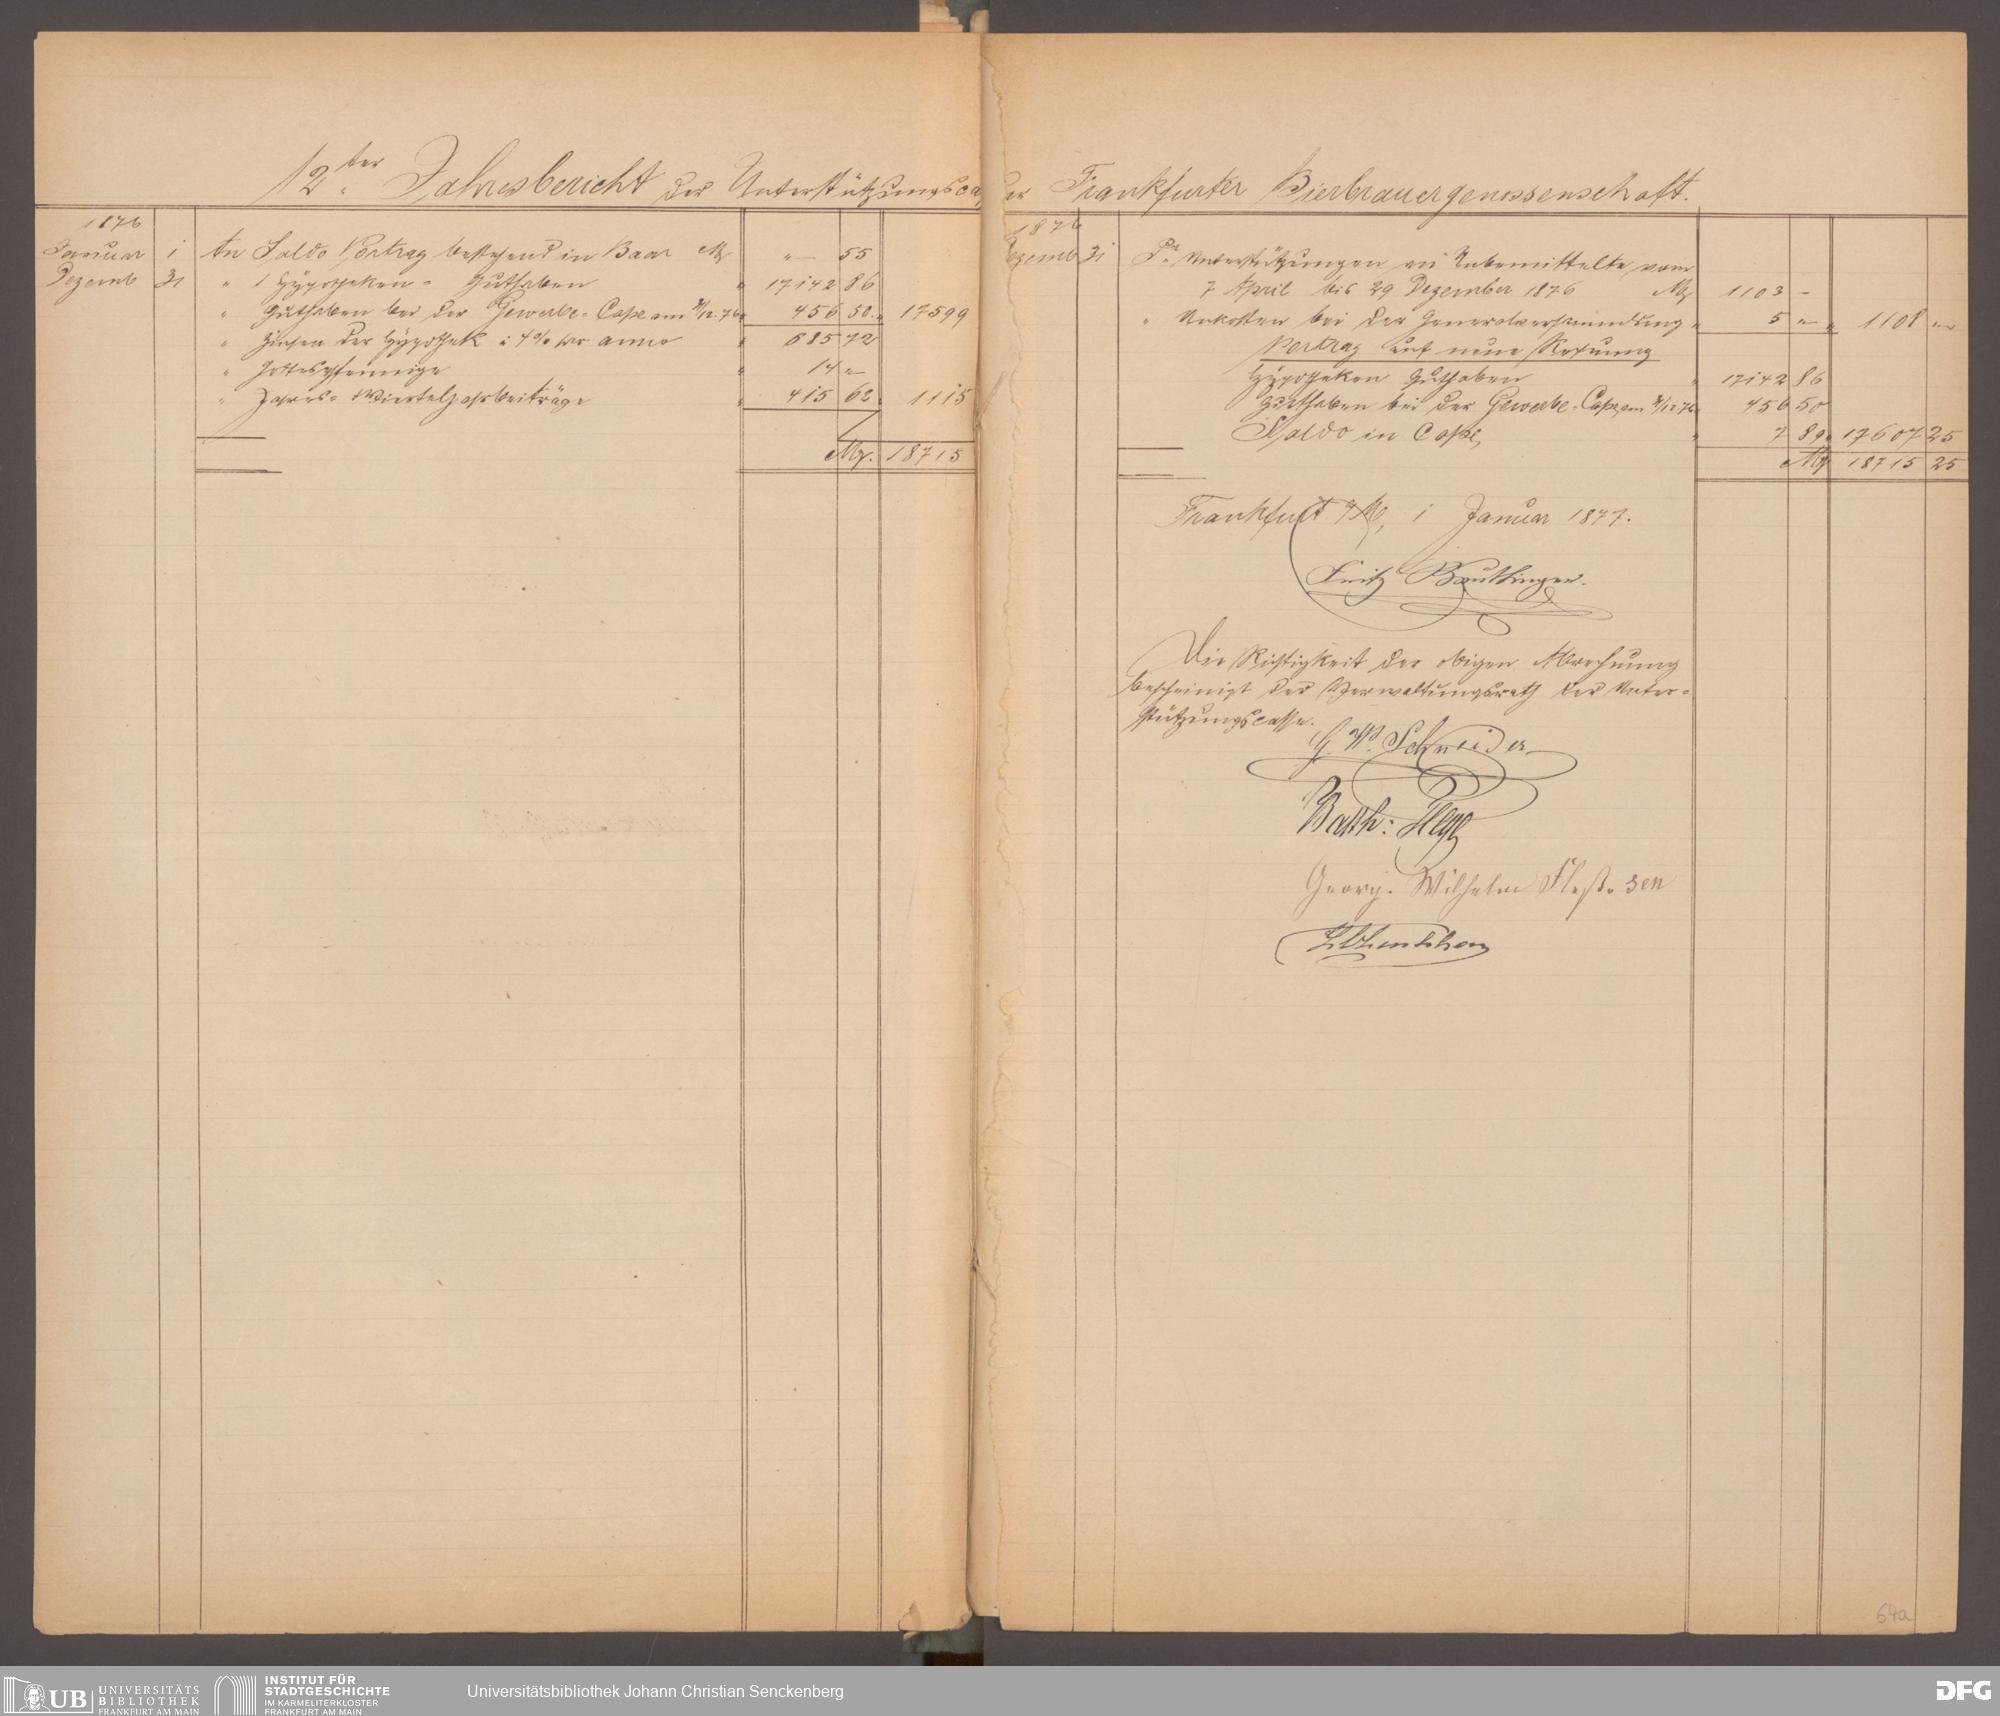 12.ter Jahresbericht der Unterstützungsca
1876
Januar 1 An Saldo Vortrag bestehend in Baar M „— 55
Dezemb 31 „ 1 Hypotheken- Guthaben „ 17142 86
„ Guthaben bei der Gewerbe-Casse am 31/12.76 „ 456 50 „ 17599
„ Zinsen der Hypothek à 4% pro anno „ 685 72
„ Gottespfennige „ 14 „
„ Jahres- Viertelzahrbeiträge „ 415 62 „ 1115
M. 18715
der Frankfurter Bierbrauergenossenschaft.
1876
Dezemb 31 Pr. Unterstützungen an Unbemittelte vom
7 April bis 29 Dezember 1876 M 1103 –
„ Unkosten bei der Generalversammlung „ 5 „ „ 1108 „
Vortrag auf neue Rechnung
Hypotheken Guthaben „ 17142 86
Guthaben bei der Gewerbe-Casse am 31/12 76 „ 456 50
Saldo in Casse, „ 7 89 „ 17607 25
M 18715 25
Frankfurt a/M, 1 Januar 1877.
Fritz
Die Richtigkeit der obigen Abrechnung
bescheinigt der Verwaltungsrath der Unter-
stützungscasse.
G. W. Schneider
Barth:
Georg. Wilhelm sen
64a
UB UNIVERSITÄTS
BIBLIOTHEK
FRANKFURT AM MAIN
INSTITUT FÜR
STADTGESCHICHTE
IM KARMELITERKLOSTER
FRANKFURT AM MAIN
Universitätsbibliothek Johann Christian Senckenberg
DFG